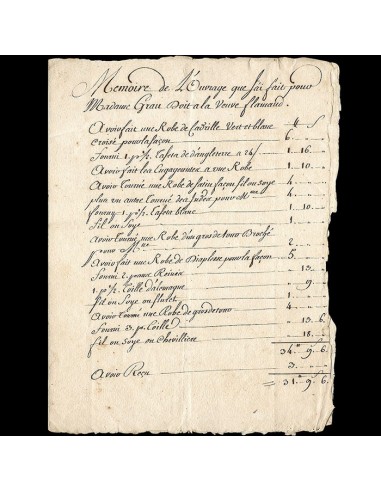 Memoire de L'Ouvrage que J'ai fait pour
Madame Grau Doit a la Veuve flamand.
avoir fait une Robe de Vert et blanc 4 s
croisé pour la façon 6
fourni 1 p 1/2 tafeta d'angleterre a 26s 1 16
avoir fait les Engageantes a une Robe 1 10
avoir tourné une Robe de satin façon fil ou soye 4
plus un autre tourné des pour Mme 1
fourny 1 p 1/2 tafeta blanc 1 10
fil ou Soye 1
avoir tourné une Robe d'un gros de tour Broché
pour 2
avoir fait une Robe de pour la façon 5
fourni 2 13
1 p 1/2 toille d'alemagne 9
fil ou Soye ou fluret 1
avoir tourné une Robe gros de tour 4
fourni 3 p toille 13 6
fil ou soye ou Chevilliere 18
34 9 6
avoir Reçu 3
= 31 9 6